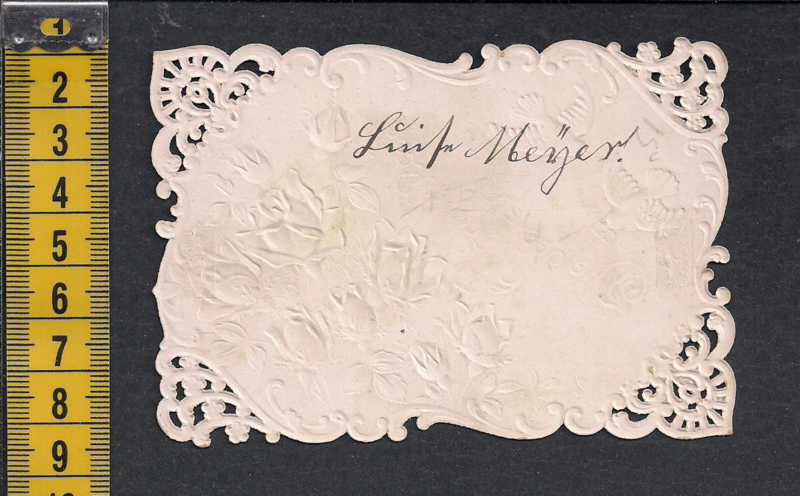 1
2
3
4
5
6
7
8
9
Luise Meÿer!